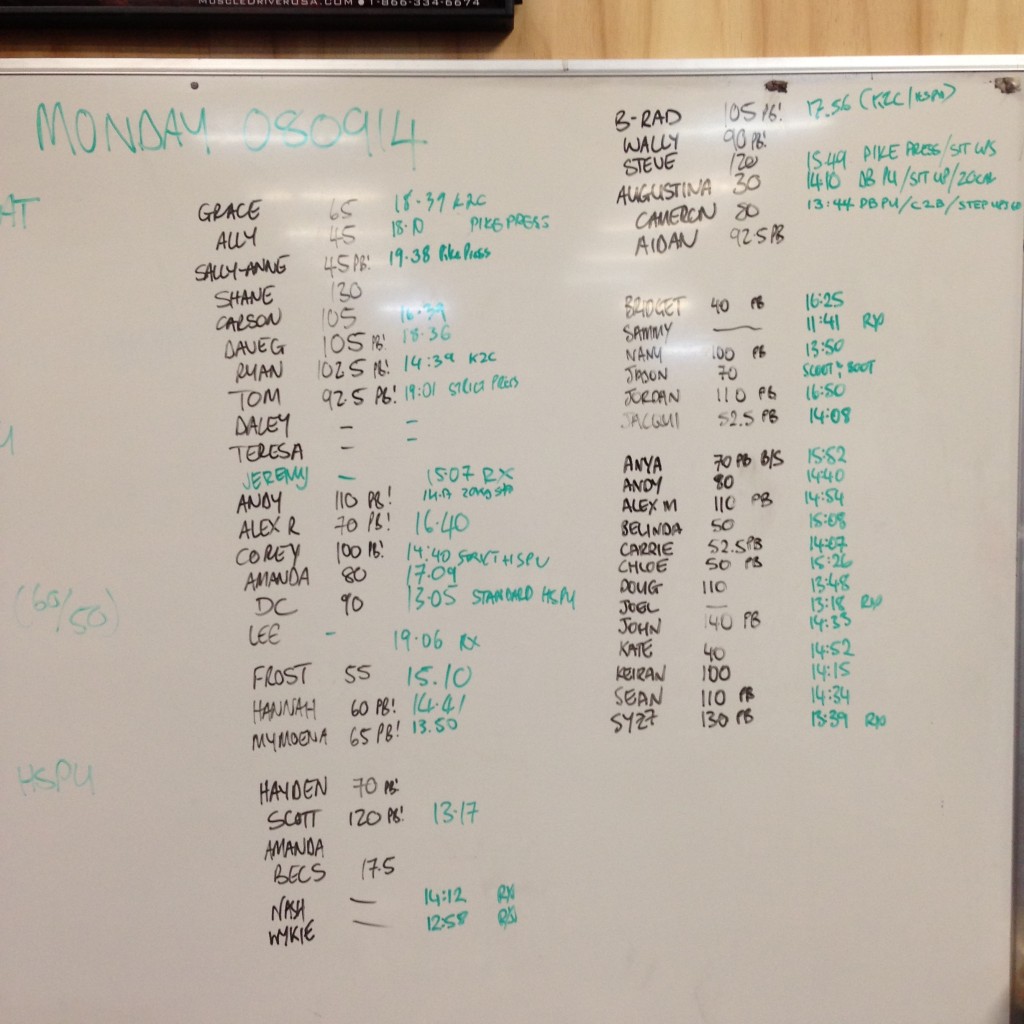 MONDAY 080914
GRACE 65 18.39 K2C
ALLY 45 18:10 PIKE PRESS
SALLY-ANNE 45 PB! 19.38 PIKE PRESS
SHANE 130
CARSON 105 16:39
DAVE G 105 PB! 18:36
RYAN 102.5 PB! 14:39 K2C
TOM 92.5 PB! 19:01 STRICT PRESS
DALEY - -
TERESA -
JEREMY - 15:07 RX
ANDY 110 PB!
ALEX R 70 PB! 16.40
COREY 100 PB! 14:40 STRICT HSPU
AMANDA 80 17:09
DC 90 13:05 STANDARD HSPU
LEE - 19:06 RX
FROST 55 15.10
HANNAH 60 PB! 14.41
MYMOENA 65 PB! 13.50
HAYDEN 70 PB!
SCOTT 120 PB! 13:17
AMANDA
BECS 175
NASH — 14:12 RX
MYKIE — 12:58 RX
B-RAD 105 PB! 17.56 (K2C/HSPU)
WALLY 90 PB!
STEVE 120 15:49 PIKE PRESS/SIT UPS
AUGUSTINA 30 14:10 DB PU/SIT UP/20CM
CAMERON 80 13:44 DB PU/C2B/STEP UPS
AIDAN 92.5 PB
BRIDGET 40 PB 16:25
SAMMY — 11:41 RXD
NANU 100 PB 13:50
JASON 70 SCOOT, SCOOT
JORDAN 110 PB 16:50
JACQUI 52.5 PB 14:08
ANYA 70 PB B/S 15:52
ANDY 80 14:40
ALEX M 110 PB 14:54
BELINDA 50 15:08
CARRIE 52.5 PB 14:07
CHLOE 50 PB 15:26
DOUG 110 13:48
JOEL — 13:18 RXD
JOHN 140 PB 14:33
KATE 40 14:52
KEIRAN 100 14:15
SEAN 110 PB 14:34
SYZ7 130 PB 13:39 RXD
(65/50)
HSPU
1-866-334-6674